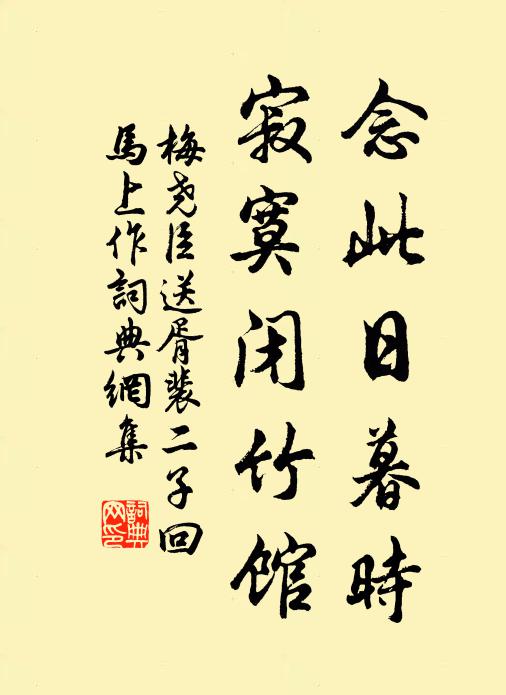 念此日暮時
寂寞閉竹館
梅堯臣送胥裴二子回
馬上作詞典網集
詞典网印